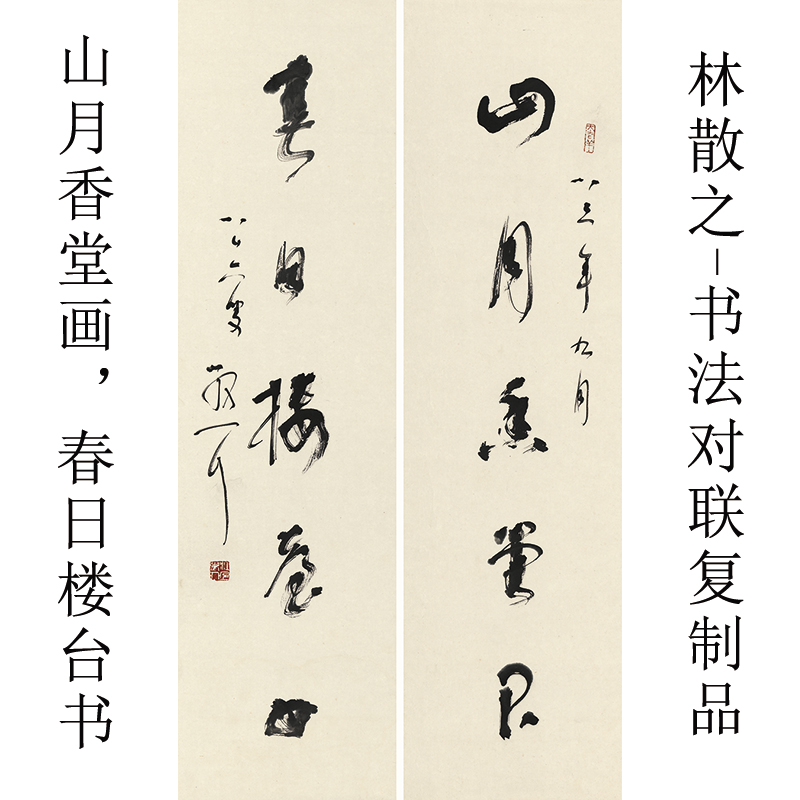 林散之-书法对联复制品
八三年九月
山月香堂
春日樓臺
八十六叟 散耳
山月香堂画，春日楼台书